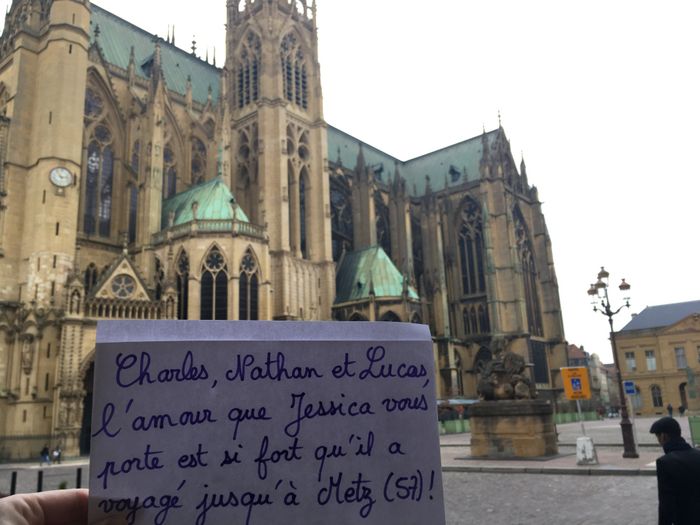 Charles, Nathan et Lucas,
l'amour que Jessica vous
porte est si fort qu'il a
voyagé jusqu'à Metz (57)!